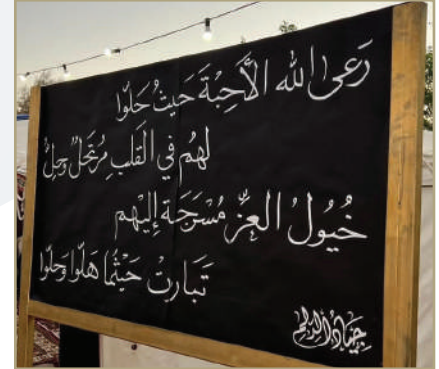 رَعى الله الأَحِبَّةَ حَيثُ حَلّوا
لهُم في القَلبِ مُرتَحَلٌ وحِلُّ
خُيُولُ العِزِّ مُسْرَجَة إِليْهم
تَبارتْ حَيثُما هَلّوا وَحَلّوا
جياد الدلم